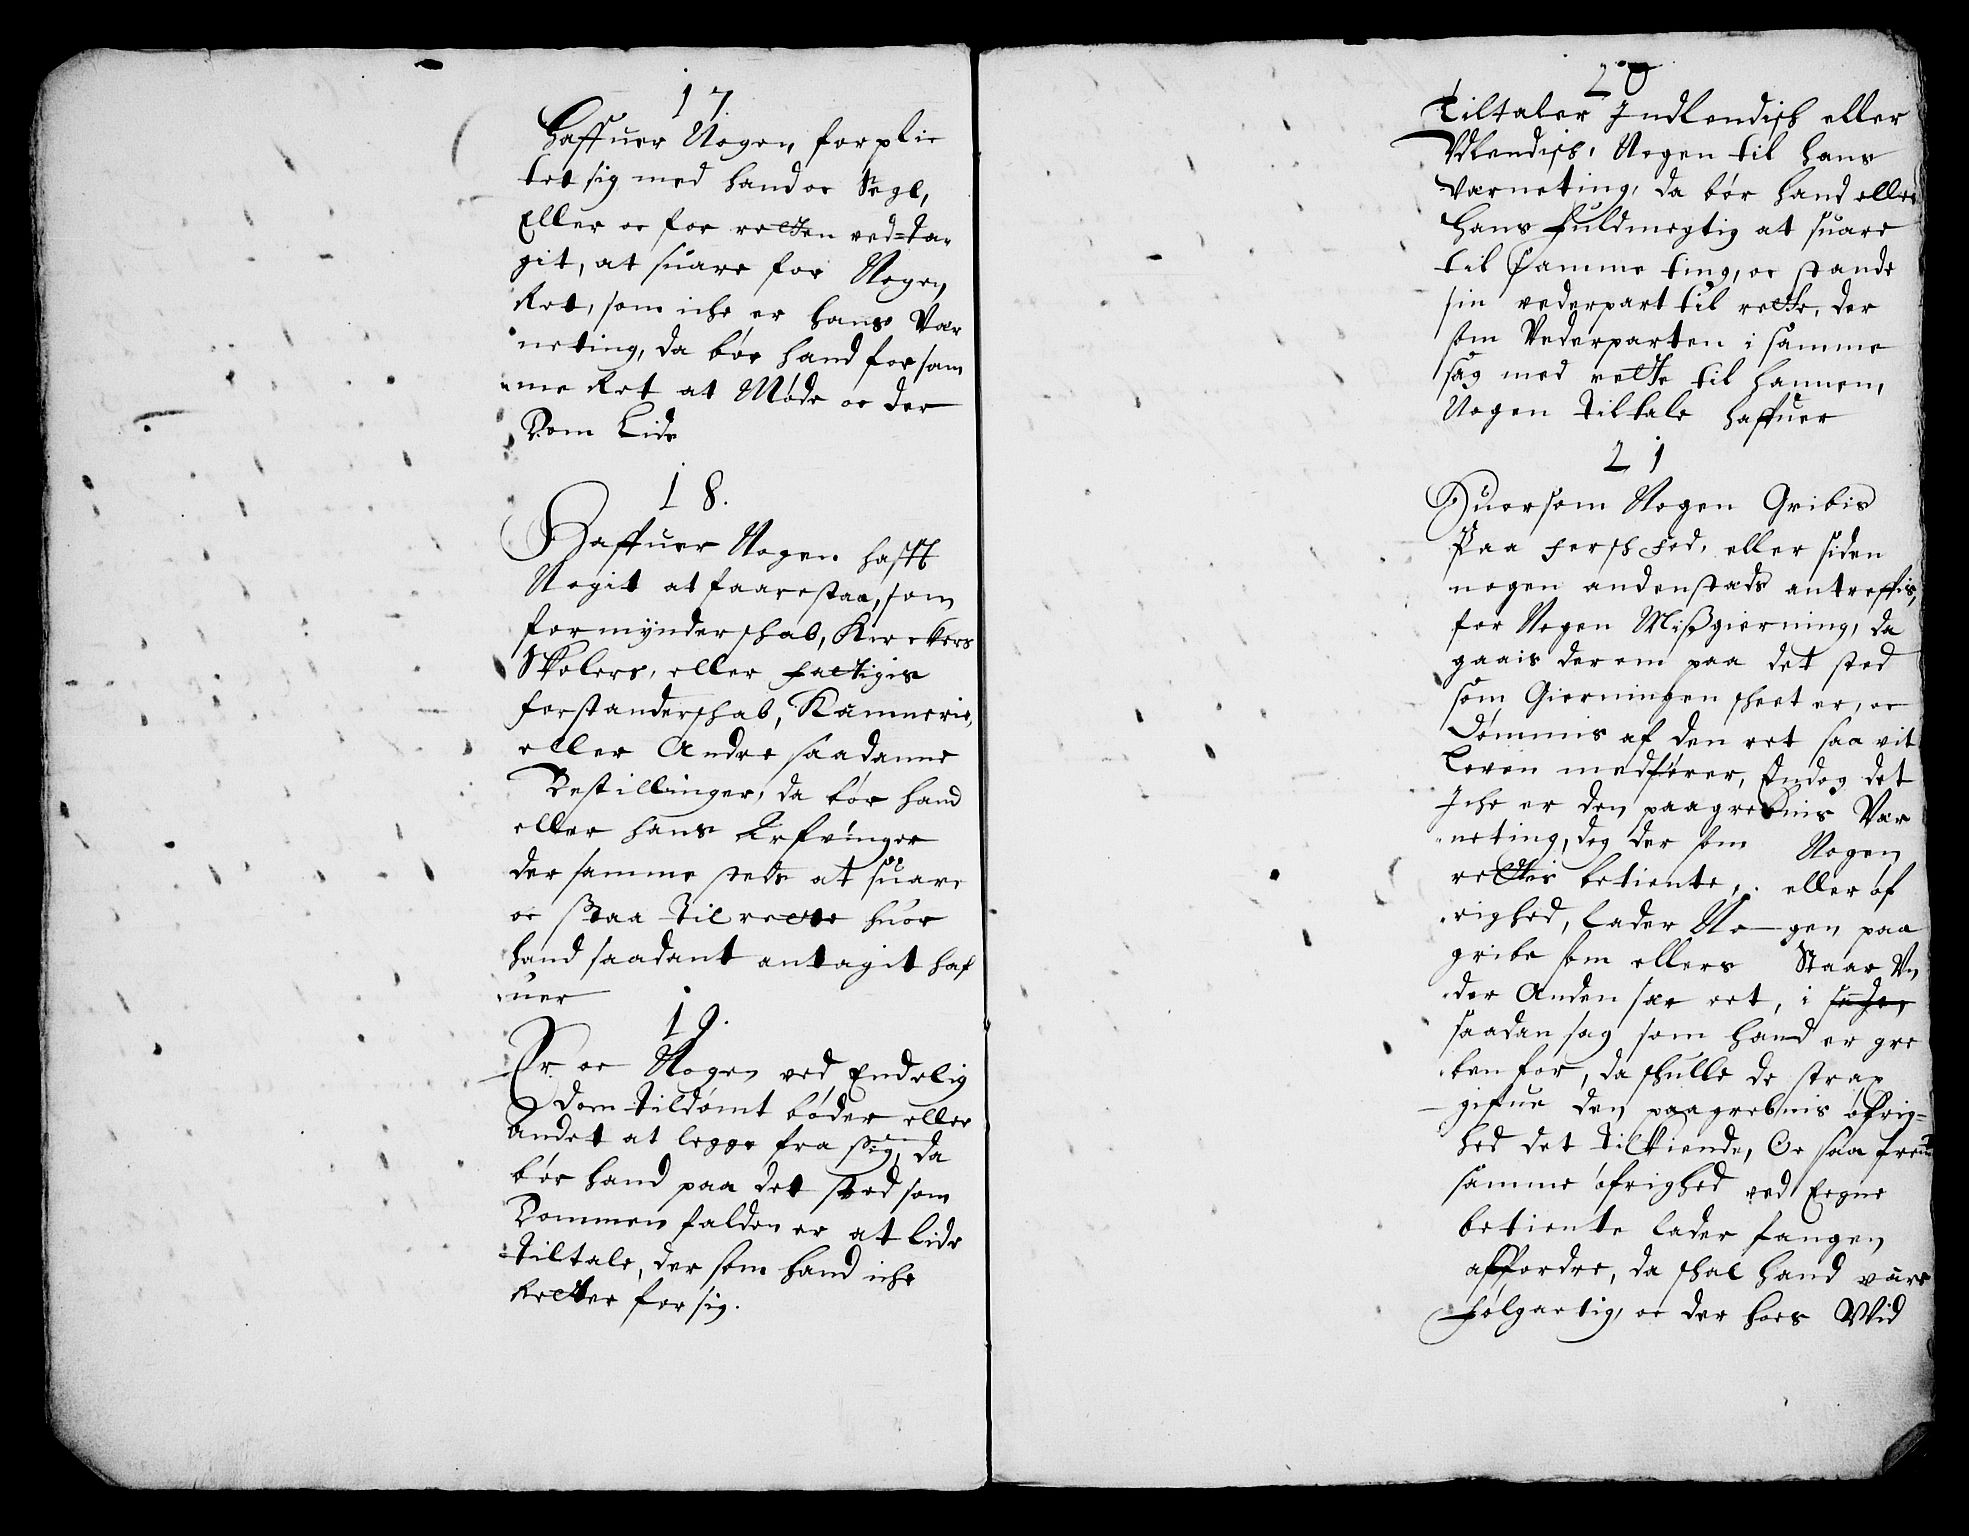 17.
Haffuer Nogen forplic
tet sig med hand oc Segl,
Eller oc for retten ved=ta-
git, at suare for Nogen
Ret, som iche er hans Vær
neting, da bør hand for sam
me Ret at Møde oc der
Dom Lide
18.
Haffuer Nogen hafft
Nogit at faarestaa, som
formynderschab, Kirckers
Skolers, eller fattigis
forstanderschab, Kæmnerie,
eller Andre saadanne
Bestillinger, da bør hand
eller hans Arfvinger
der samme steds at suare
oc staa til rette huor
hand saadant antagit haf
uer
19.
Er oc Nogen ved Endelig
Dom tildømt bøder eller
andet at legge fra sig, da
bør hand paa det sted som
Dommen falden er at lide
Tiltale, der som hand iche
Retter for sig.
20
Tiltaler Indlendisch eller
Vdlendisch, Nogen til hans
værneting, da bør hand eller
hans fuldmegtig at suare
til samme ting, oc stande
sin vederpart til rette, der
som Vederparten i samme
sag med rette til hannem,
Nogen Tiltale haffuer
21
Huorsom Nogen Gribis
Paa fersch fod, eller siden
nogen andenstads antreffis,
for Nogen Mißgierning, da
gaais derom paa det sted
som Gierningen scheet er, oc
Dømmis af den ret saa vit
Loven medfører, Endog det
Iche er den paagrebnis Vær
neting, dog der som Nogen
rettis betiente, eller øf
righed, lader No-gen paa
gribe som ellers Staar Vn
der Anden sær ret, i
saadan sag som hand er gre
ben for, da schulle de strax
gifue den paagrebnis øfrig=
hed det tilkiende, Oc saa frem̃t
samme øfrighed ved Eegne
betiente lader fangen
affordre, da schal hand være
følgactig, oc der hoes Wid